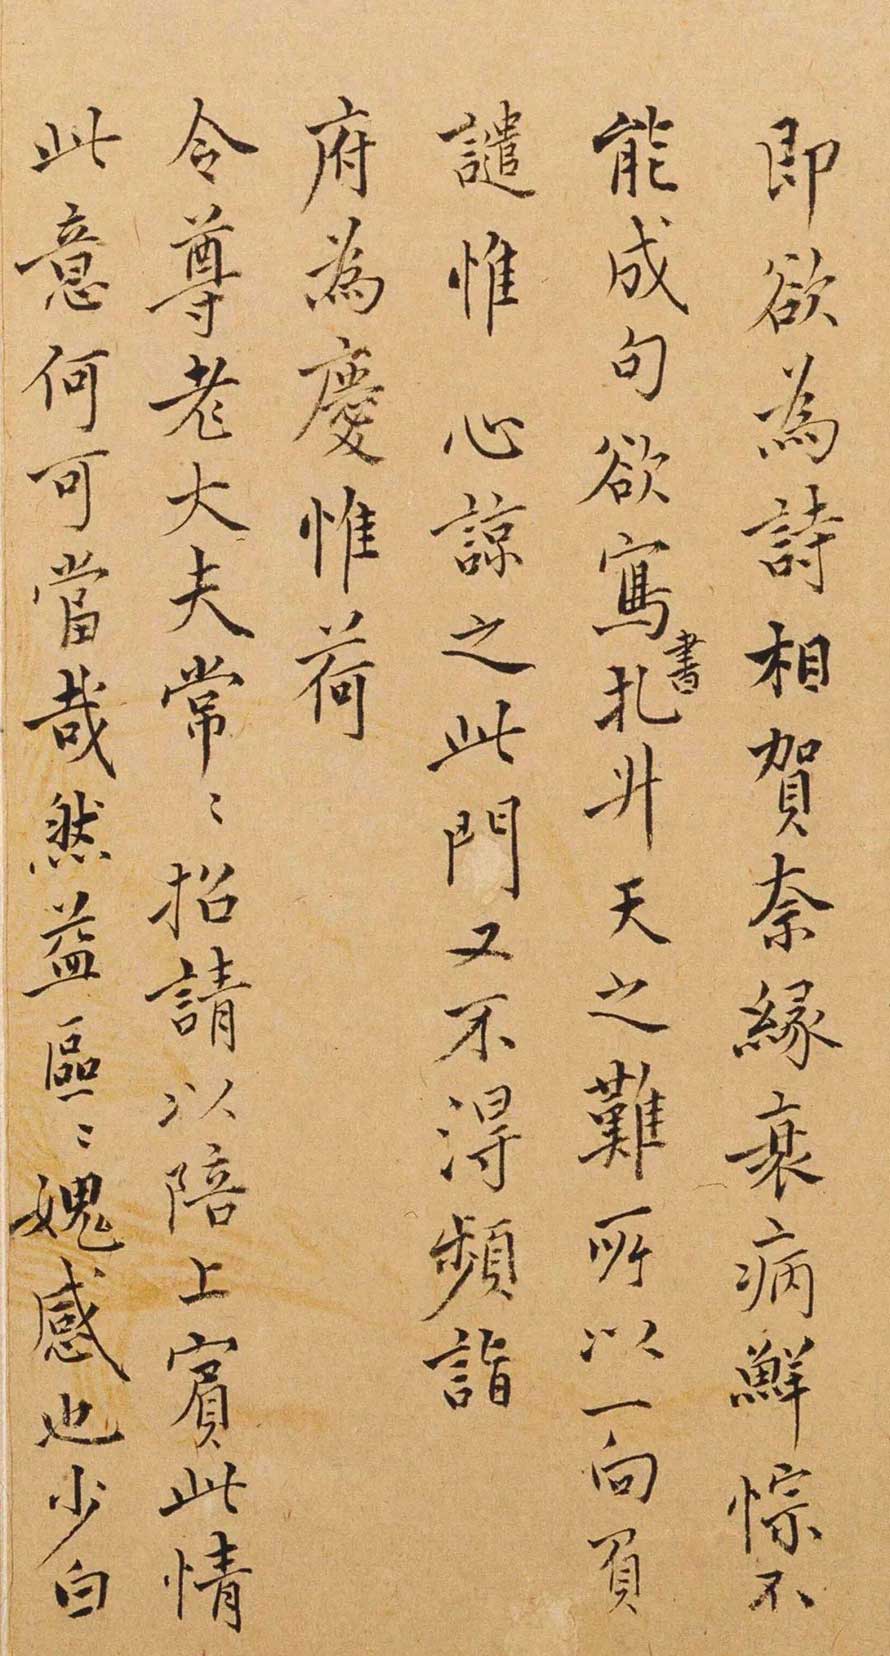 即欲為詩相賀奈緣衰病鮮悰不
能成句欲寫書札升天之難所以一向負
譴惟心諒之此門又不得頻詣
府為慶惟荷
令尊老大夫常〻招請以陪上賓此情
此意何可當哉然益區〻媿感也少白